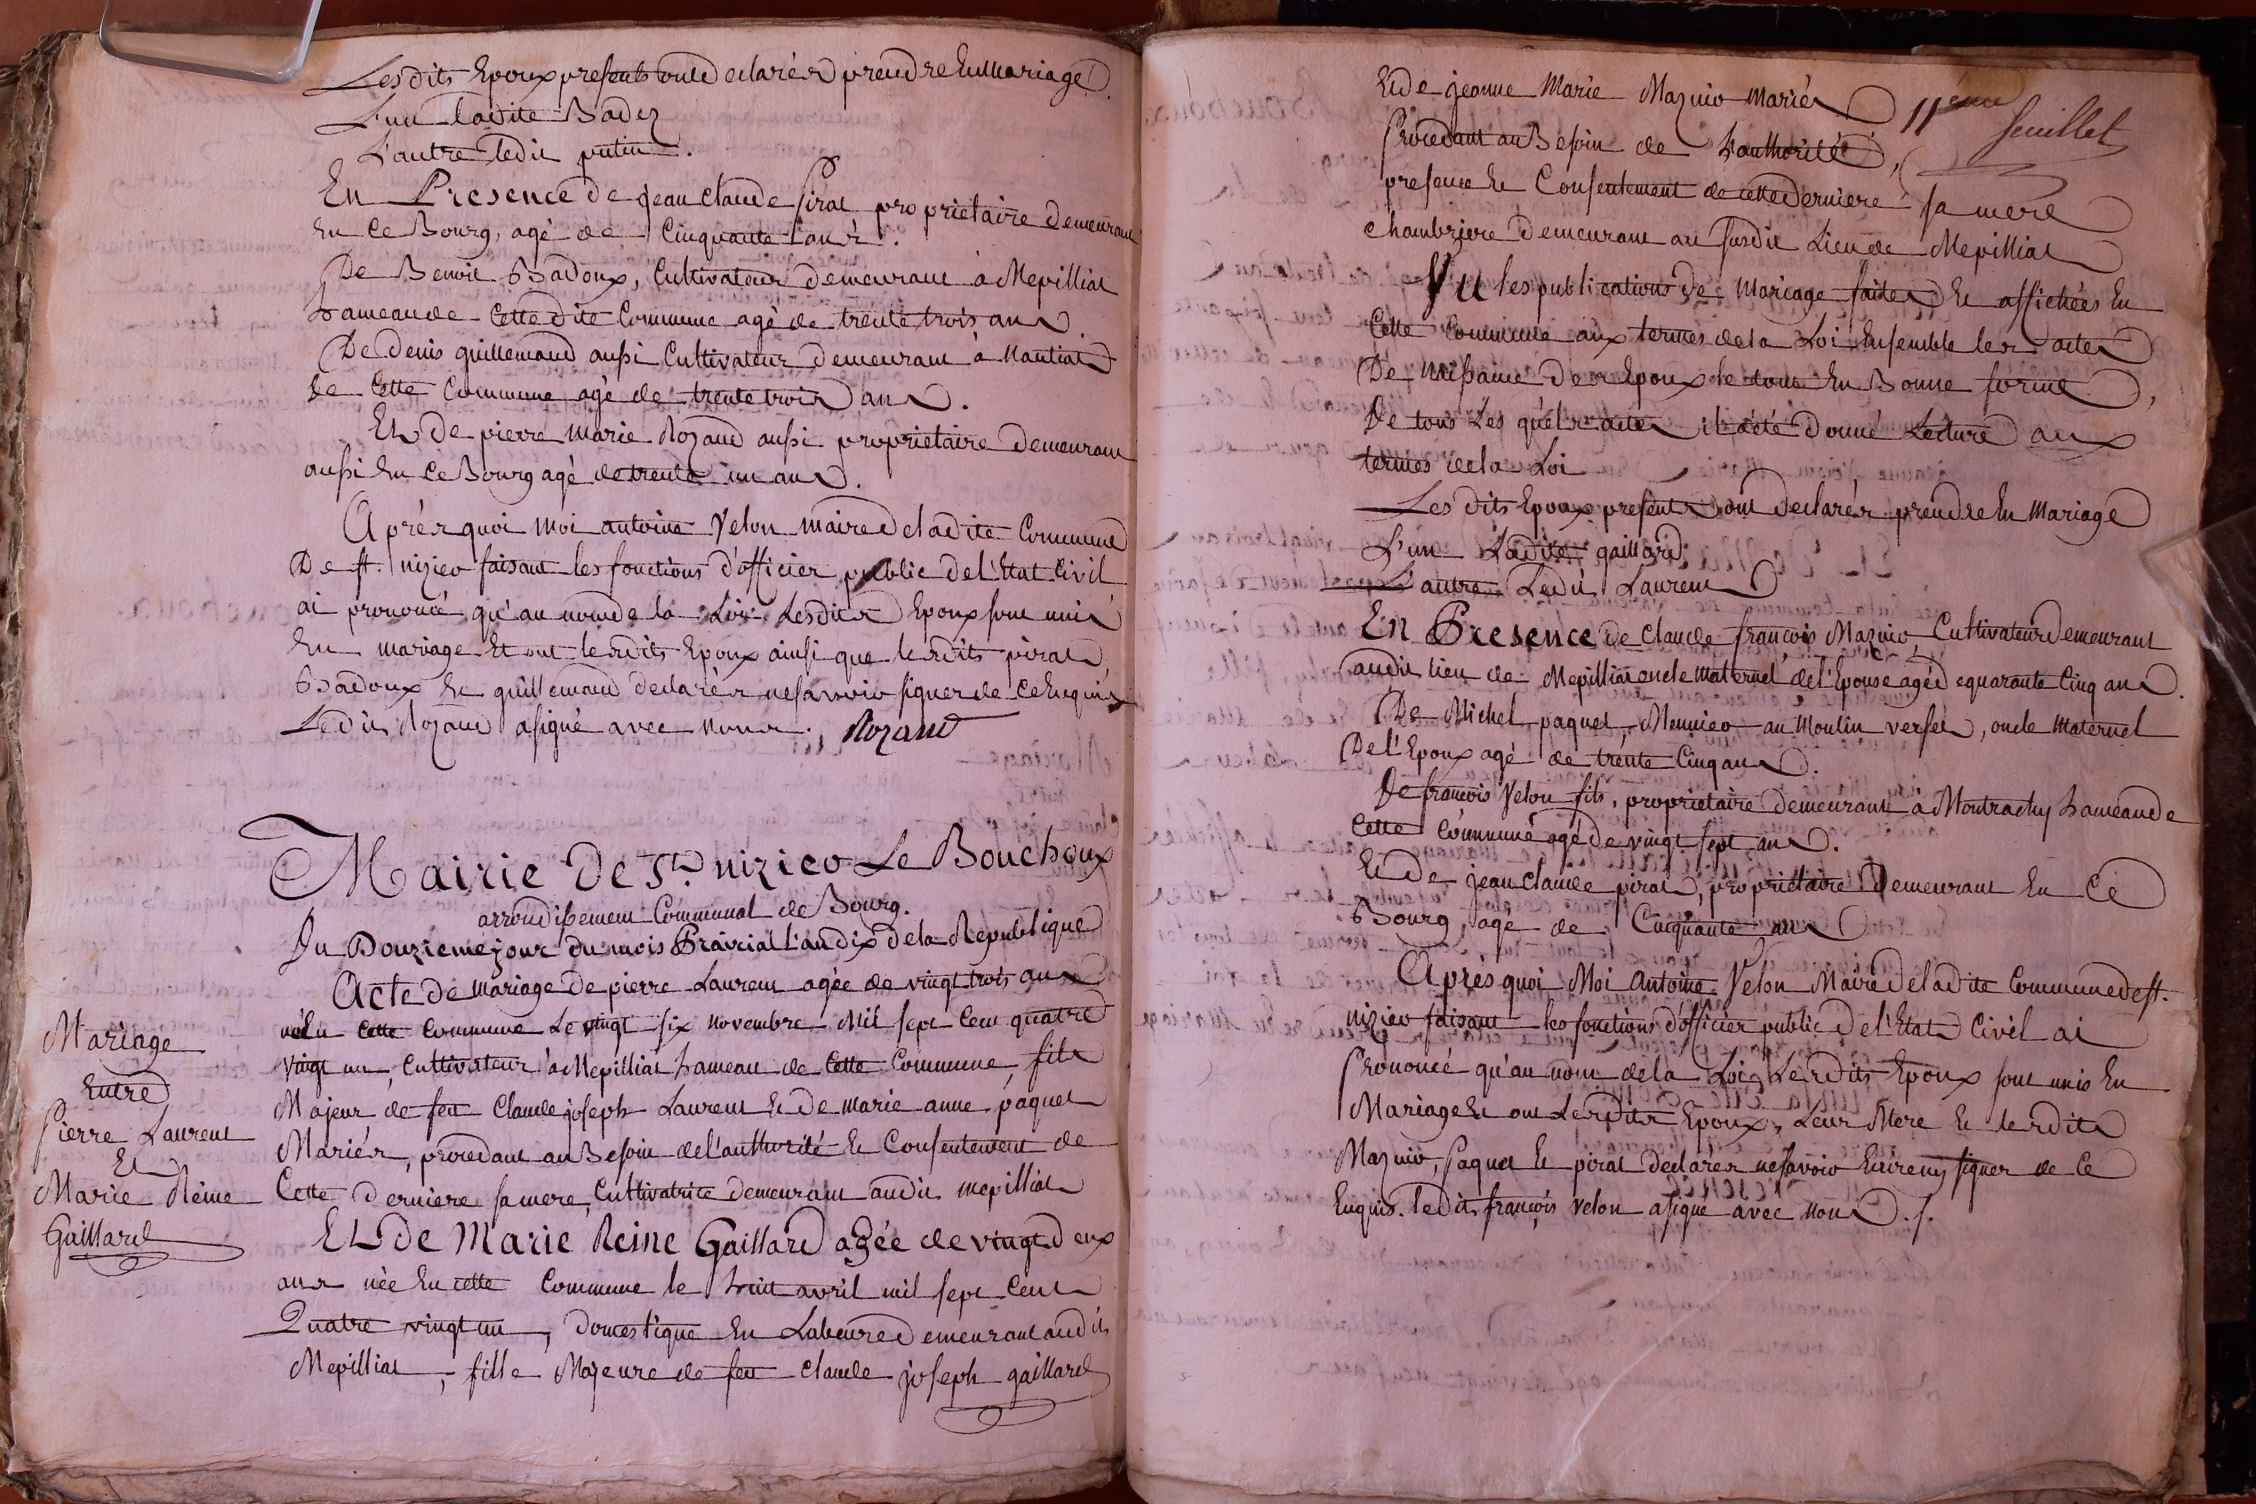 Lesdits Epoux presents ont declarér prendre En Mariage
L'un Ladite Badez
L'autre Ledit putin.
En Presence de jean claude pirat proprietaire demeurant
En Ce Bourg, agé de Cinquante ans.
De Benoit Badoux, Cultivateur demeurant à Mepilliat
hameau de Cette dite Commune agé de trente trois ans.
De denis guillemaud aussi Cultivateur demeurant à Nantiat
de Cette Commune agé de trente trois ans.
Et de pierre marie Rozand aussi proprietaire demeurant
aussi En Ce Bourg agé de trente un ans.
Aprés quoi Moi antoine Velon maire de ladite Commune
De st. nizier faisant les fonctions d'officier public de l'Etat Civil
ai prononcé qu'au nom de la Loi Lesdits Epoux sont unis
En mariage Et ont lesdits Epoux ainsi que lesdits pirat,
Badoux Et guillemaud declarér ne savoir signer de Ce Enquis
Ledit Rozand a signé avec nous. Rozand
Mairie De St. nizier Le Bouchoux
arrondissement Communal de Bourg.
Du Douzieme jour du mois Prairial L'an dix de la Republique
Acte de mariage De pierre Laurent agée de vingt trois ans
né En cette Commune Le vingt six novembre Mil sept Cent quatre
vingt un, Cultivateur à Mepilliat hameau de Cette Commune, fils
Majeur de feu Claude joseph Laurent Et De marie anne paquet
Mariér, procedant au Besoin de l'authorité Et Consentement de
Cette derniere sa mere, Cultivatrice demeurant audit mepilliat
Et De Marie Reine Gaillard agée de vingt deux
ans née En cette Commune le huit avril mil sept Cent
Quatre vingt un, domestique En Labeure demeurant audit
Mepilliat, fille Majeure de feu Claude joseph gaillard
Mariage
Entre
Pierre Laurent
Et
Marie Reine
Gaillard
11eme
feuillet
Et de jeanne Marie Mazuir Mariér
Procedant au Besoin de L'authorité,
presence Et Consentement de cette derniere sa mere
Chambriere demeurant au susdit Lieu de Mepilliat
Vu les publications de Mariage faites Et affichées En
Cette Commune aux termes de la Loi Ensemble les actes
De naissance des Epoux le tout En Bonne forme,
De tous Les quels actes il a été donné Lecture aux
termes de la Loi
Les dits Epoux presents ont declarér prendre En Mariage
L'un Ladite gaillard
L'autre Ledit Laurent
En Presence de Claude françois Mazuir Cultivateur demeurant
audit lieu de Mepilliat oncle maternel de l'Epouse agé de quarante Cinq ans.
De Michel paquet, Meunier au Moulin versey, oncle maternel
De l'Epoux agé de trente Cinq ans.
De françois Velon fils, proprietaire demeurant à Montrachy hameau de
Cette Commune agé de vingt sept ans.
Et de jean claude pirat, proprietaire demeurant En Ce
Bourg, agé de Cinquante ans
Après quoi Moi Antoine Velon Maire de ladite Commune de st.
nizier faisant les fonctions d'officier public de l'Etat Civil ai
Prononcé qu'au nom de la Loi Lesdits Epoux sont unis En
Mariage Et ont Lesdits Epoux, Leur Mere Et lesdits
Mazuir, Paquet Et pirat declarér ne savoir Ecrire ny signer de Ce
Enquis. Ledit françois Velon a signé avec nous ./.